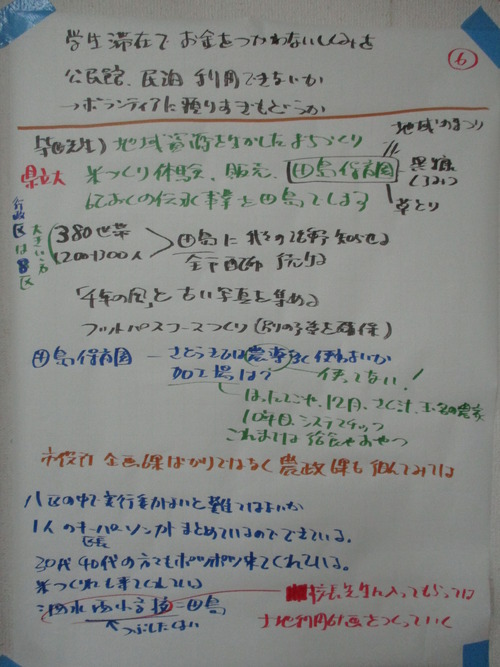 学生滞在でお金をつかわないしくみを
⑥
公民館、民泊 利用できないか
→ボランティアに頼りすぎもどうか
地域資源を生かしたまちづくり
地域
県立大
米づくり体験、販売、田島保育園
草とり
の伝承事業を田島でします
行政区は8区
大きい方
380世帯
1200~1300人
田島に 我々の活動 知らせる
全戸配布
「千年の風」と古い写真を集める
フットパスコースづくり(別の予算を確保)
田島保育園 — さとうきびは農薬 使わないか
加工場は?
使ってない!
12月、さく汁、玉名の農家
10年目、システマチック
これまでは給食やおやつ
市役所 企画課ばかりではなく農政課も 組んでみては
八区の中で実行委がないと難ではないか
1人のキーパーソンが まとめているのでできている。
区長
30代 40代の方でもポツポツ来てくれている。
米づくりも来てくれている
泗水西小学校=田島
つぶしたくない
校長先生に入ってもらっては
土地利用計画をつくっていく